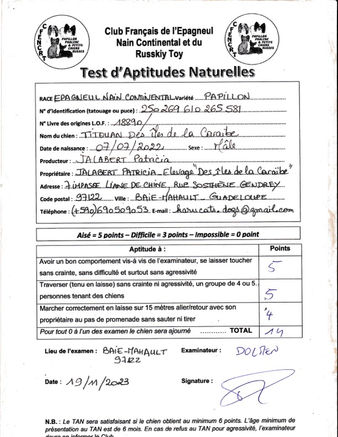 Club Français de l'Epagneul
Nain Continental et du
Russkiy Toy
Test d'Aptitudes Naturelles
RACE EPAGNEUL NAIN CONTINENTAL Variété PAPILLON
N° d'identification (tatouage ou puce) : 250 269 610 265 581
N° Livre des origines L.O.F. : 18890/
Nom du chien : TITOUAN DES ÎLES DE LA CARAÏBE
Date de naissance : 07/07/2022 Sexe : Mâle
Producteur : JALABERT Patricia
Propriétaire : JALABERT PATRICIA_ Elevage "DES ÎLES DE LA CARAÏBE"
Adresse : 7 IMPASSE LIANE DE CHINE, RUE SOSTHÈNE GENDREY
Code postal : 97122 Ville : BAIE-MAHAULT - GUADELOUPE
Téléphone : (+590) 690509053 E-mail : harucats.dogs@gmail.com
Aisé = 5 points – Difficile = 3 points – Impossible = 0 point
Aptitude à : Points
Avoir un bon comportement vis-à vis de l'examinateur, se laisser toucher
sans crainte, sans difficulté et surtout sans agressivité 5
Traverser (tenu en laisse) sans crainte ni agressivité, un groupe de 4 ou 5
personnes tenant des chiens 5
Marcher correctement en laisse sur 15 mètres aller/retour avec son
propriétaire au pas de promenade sans sauter ni tirer 4
Pour tout 0 à l'un des examen le chien sera ajourné ............ TOTAL 14
Lieu de l'examen : BAIE-MAHAULT Examinateur :
97122
Date : 19/11/2023 Signature :
N.B. : Le TAN sera satisfaisant si le chien obtient au minimum 6 points. L'âge minimum de
présentation au TAN est de 6 mois. En cas de refus au TAN pour agressivité, l'examinateur